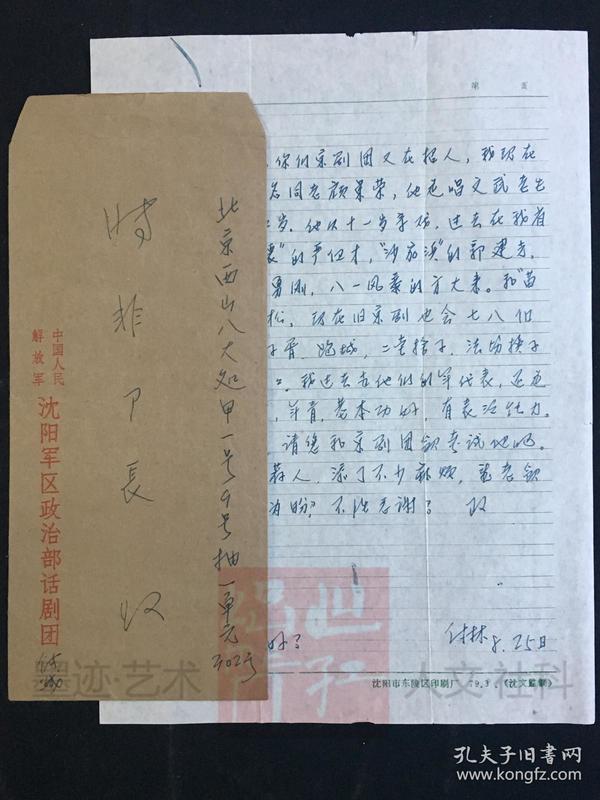 北京西山八大处甲一号9号抽一单元
时非 长 收
中国人民
解放军
沈阳军区政治部话剧团
第 页
你们京剧团又在招人，我现在
同志颜景荣，他是唱文武老生
岁。他从十一岁学戏，过去在我省
的严伟才，"沙家浜"的郭建光，
勇刚，八一风暴的方大来。和"苗
松，现在旧京剧也会七八出
子胥，跑城，二堂捨子，法场换子
。我过去在他们的军代表，还是
，年青，基本功好，有表演能力。
请您和京剧团领考试他吧。
荐人，添了不少麻烦，
为盼？不胜感谢？ 致
好？
付林 8.25日
沈阳市东陵区印刷厂 79.3. (沈文监制)
墨迹·艺术
人文社科
孔夫子旧书网
www.kongfz.com